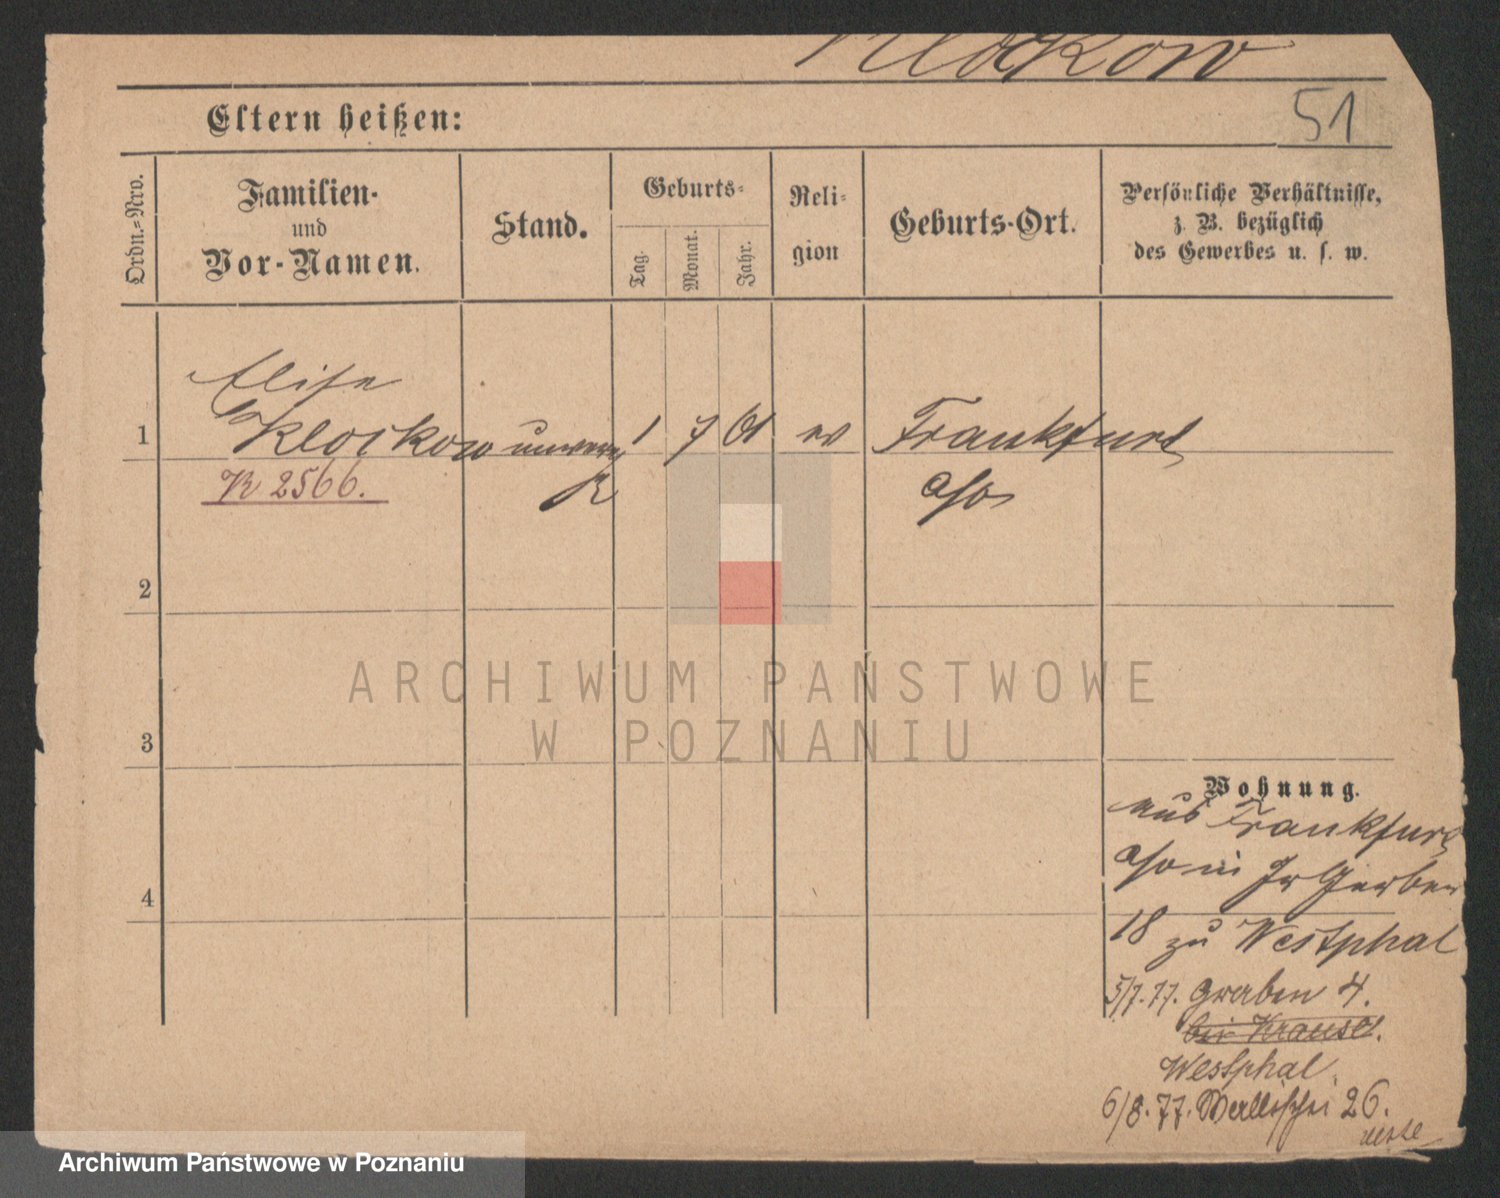 Klockow
51
Eltern heißen:
Ordn.-Nro.
Familien-
und
Vor-Namen.
Stand.
Geburts-
Tag.
Monat.
Jahr.
Reli-
gion
Geburts-Ort.
Persönliche Verhältnisse,
z. B. bezüglich
des Gewerbes u. s. w.
Elise
1 Klockow 1 7 61 ev Frankfurt
K 2566. a/o
2
ARCHIWUM PAŃSTWOWE
W POZNANIU
3
Wohnung.
aus Frankfurt
a/o in Gr Gerber
4
18 zu Westphal
5/7. 77. Graben 4.
bei Krause.
Westphal.
6/8. 77. Wallischei 26.
Archiwum Państwowe w Poznaniu